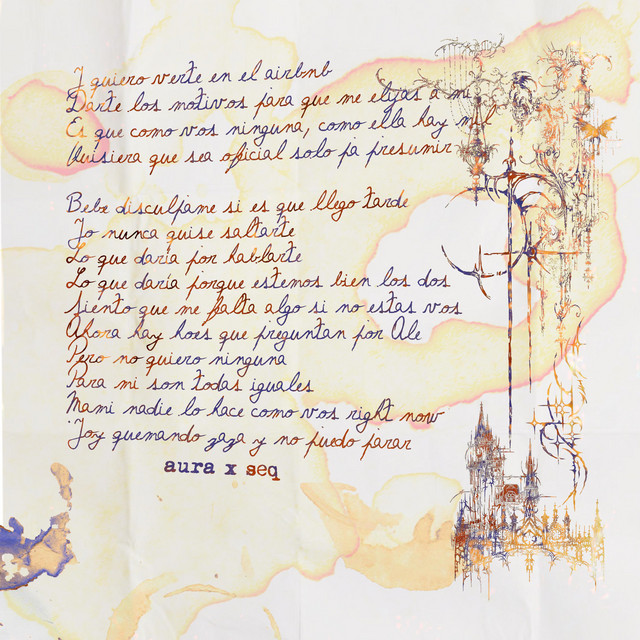 Y quiero verte en el airbnb
Darte los motivos para que me elijas a mi
Es que como vos ninguna, como ella hay mil
Quisiera que sea oficial solo pa presumir
Bebe disculpame si es que llego tarde
Yo nunca quise saltarte
Lo que daría por hablarte
Lo que daría porque estemos bien los dos
Siento que me falta algo si no estas vos
Ahora hay hoes que preguntan por Ale
Pero no quiero ninguna
Para mi son todas iguales
Mami nadie lo hace como vos right now
Toy quemando zaza y no puedo parar
aura x seq